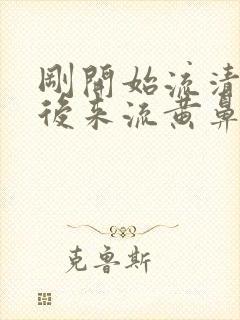 剛開始流清
後來流黃鼻
克魯斯